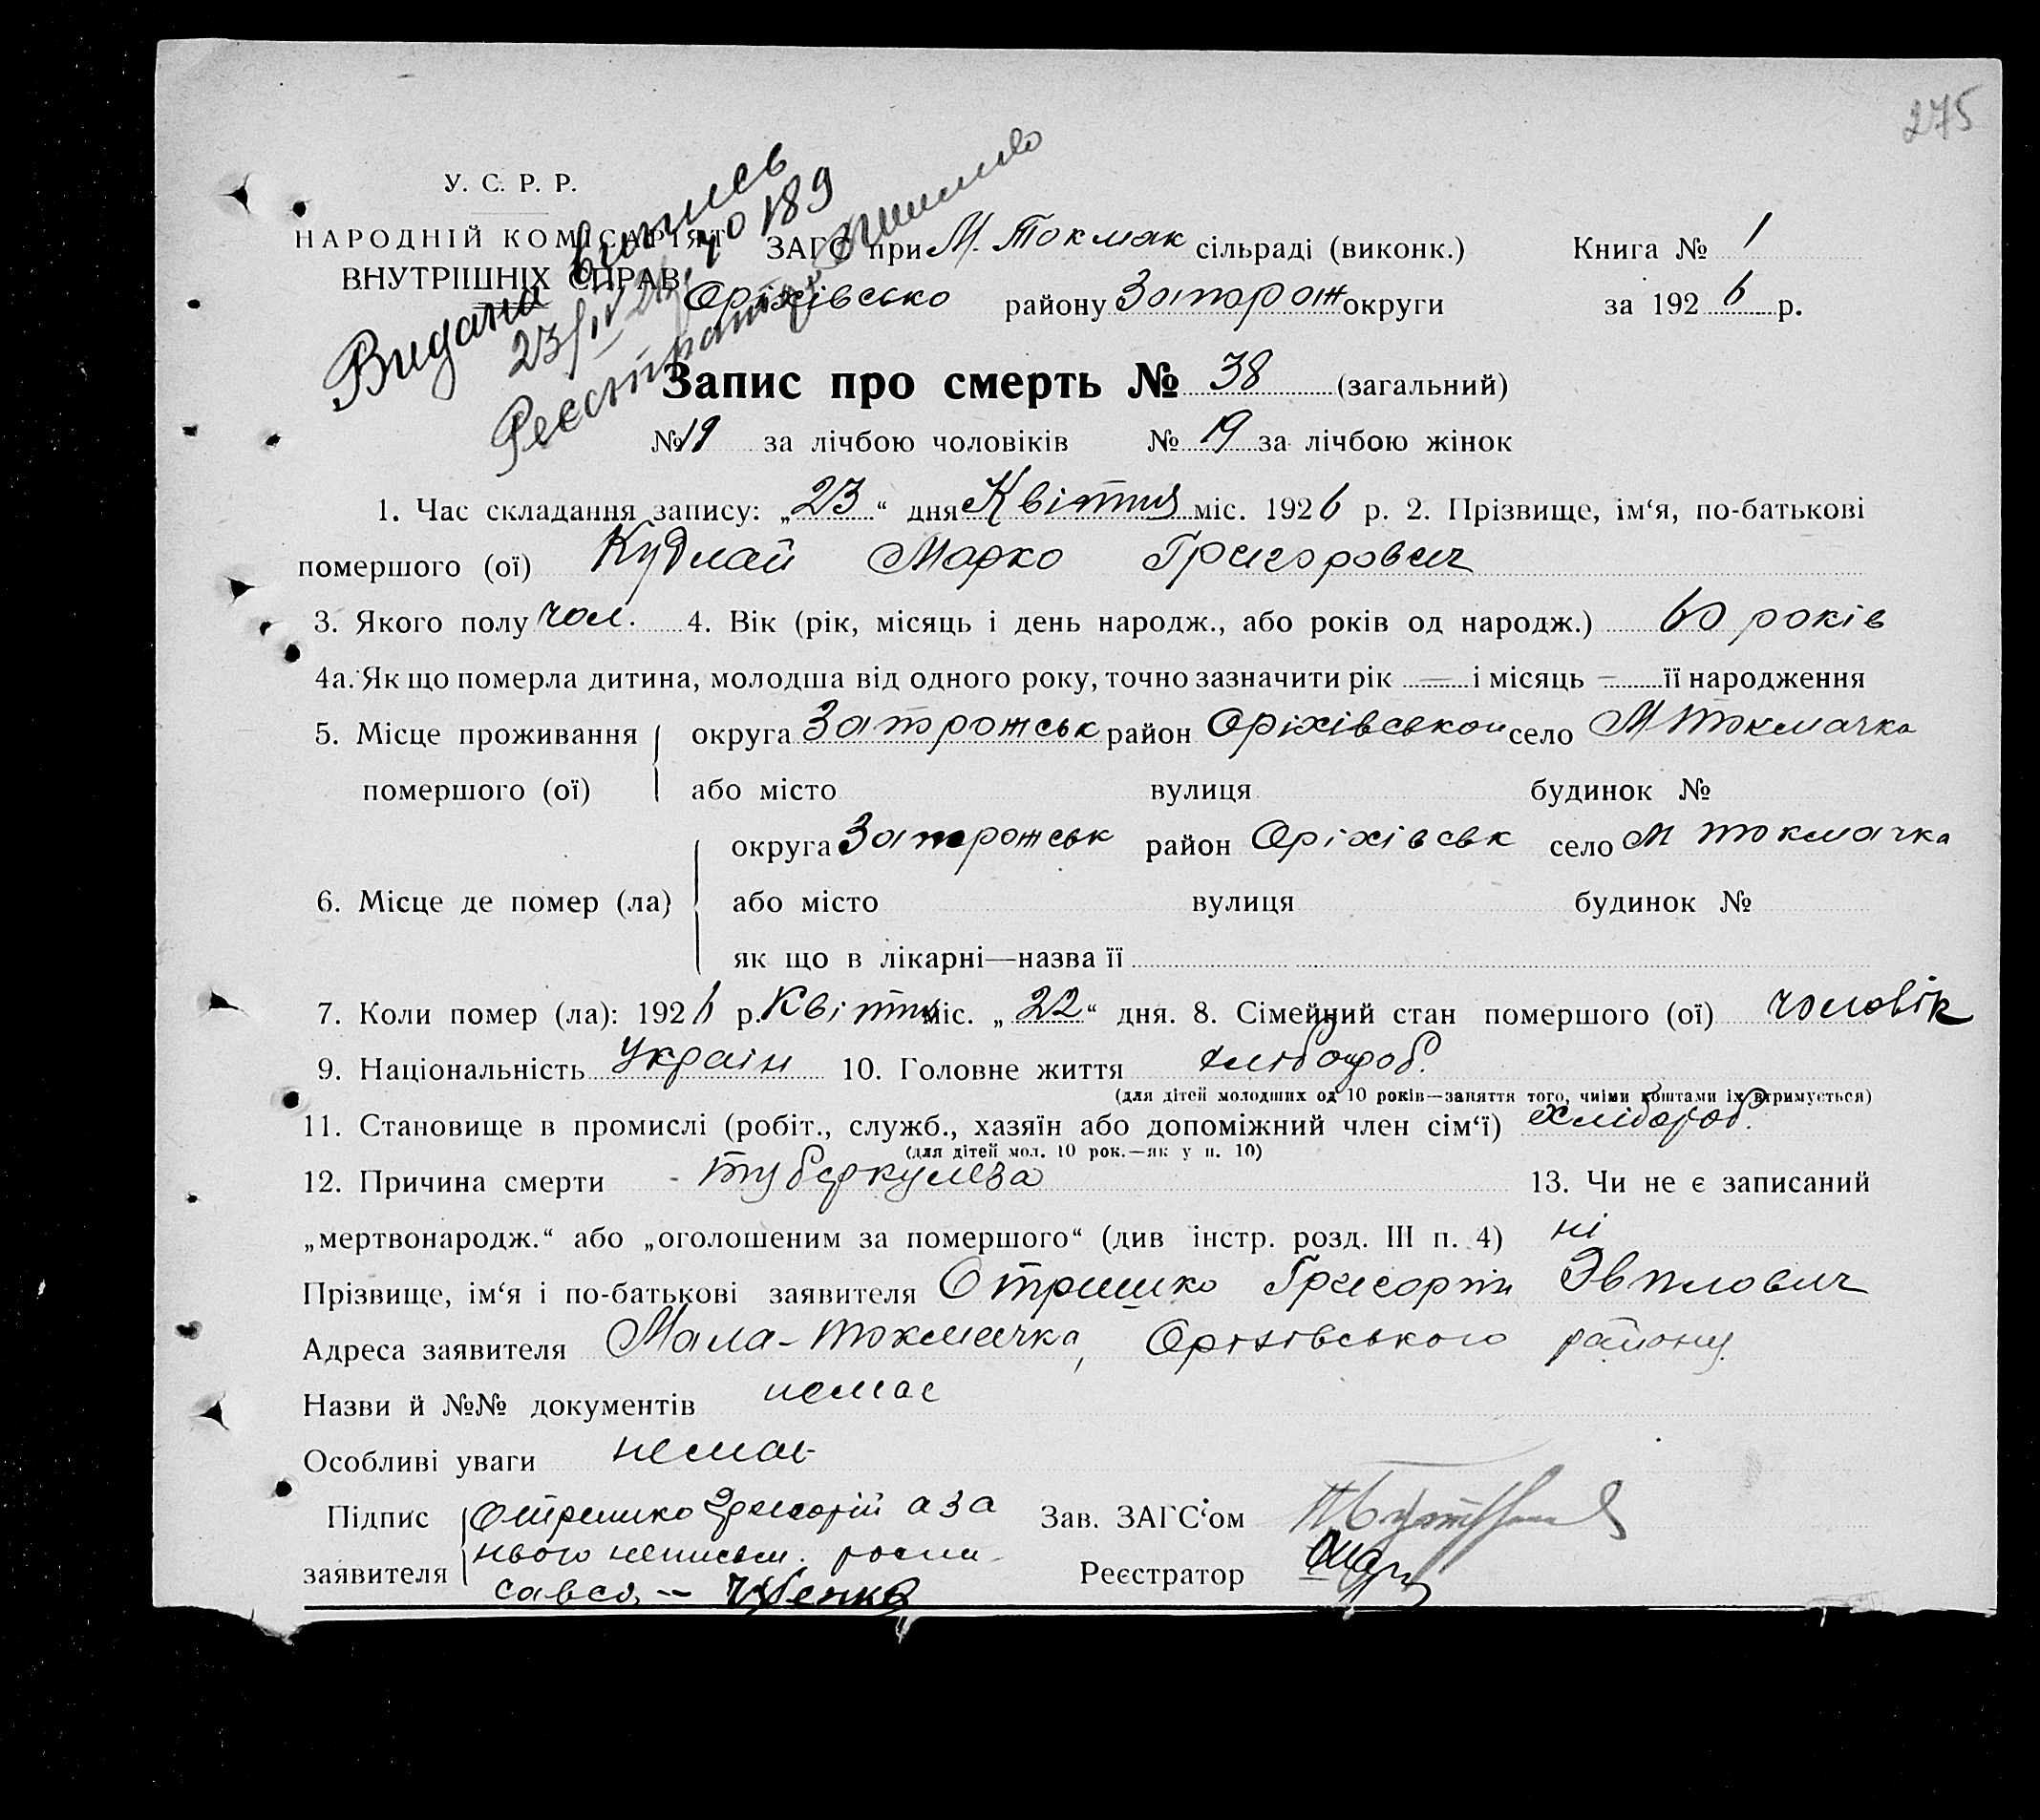 275
У. С. Р. Р.
НАРОДНІЙ КОМІСАРІЯТ
ВНУТРІШНІХ СПРАВ
Видана виписъ
23/IV 26 р. № 189
Реєстратор
ЗАГС при М. Токмак сільраді (виконк.) Книга № 1
Оріхівсько району Запорож округи за 1926 р.
Запис про смерть № 38 (загальний)
№ 19 за лічбою чоловіків № 19 за лічбою жінок
1. Час складання запису: „23“ дня Квітня міс. 1926 р. 2. Прізвище, ім‘я, по-батькові
помершого (ої) Кудлай Марко Григорович
3. Якого полу чол. 4. Вік (рік, місяць і день народж., або років од народж.) 60 років
4а. Як що померла дитина, молодша від одного року, точно зазначити рік — і місяць — її народження
5. Місце проживання округа Запорожськ район Оріхівськой село М Токмачка
помершого (ої) або місто вулиця будинок №
округа Запорожськ район Оріхівськ село М Токмачка
6. Місце де помер (ла) або місто вулиця будинок №
як що в лікарні—назва її
7. Коли помер (ла): 1926 р. Квітня міс. „22“ дня. 8. Сімейний стан помершого (ої) чоловік
9. Національність Україн 10. Головне життя хлібороб.
(для дітей молодших од 10 років—заняття того, чиїми коштами їх втримується)
11. Становище в промислі (робіт., служб., хазяїн або допоміжний член сім‘ї) хлібороб.
(для дітей мол. 10 рок.—як у п. 10)
12. Причина смерти - туберкульоза 13. Чи не є записаний
„мертвонародж.“ або „оголошеним за помершого“ (див інстр. розд. III п. 4) ні
Прізвище, ім‘я і по-батькові заявителя Отришко Григорій
Адреса заявителя Мала-Токмачка, Оріхівського району
Назви й №№ документів немає
Особливі уваги немає
Підпис Отришко Григорій а за Зав. ЗАГС‘ом
нього неписьм. роспи-
заявителя Реєстратор
савсь --